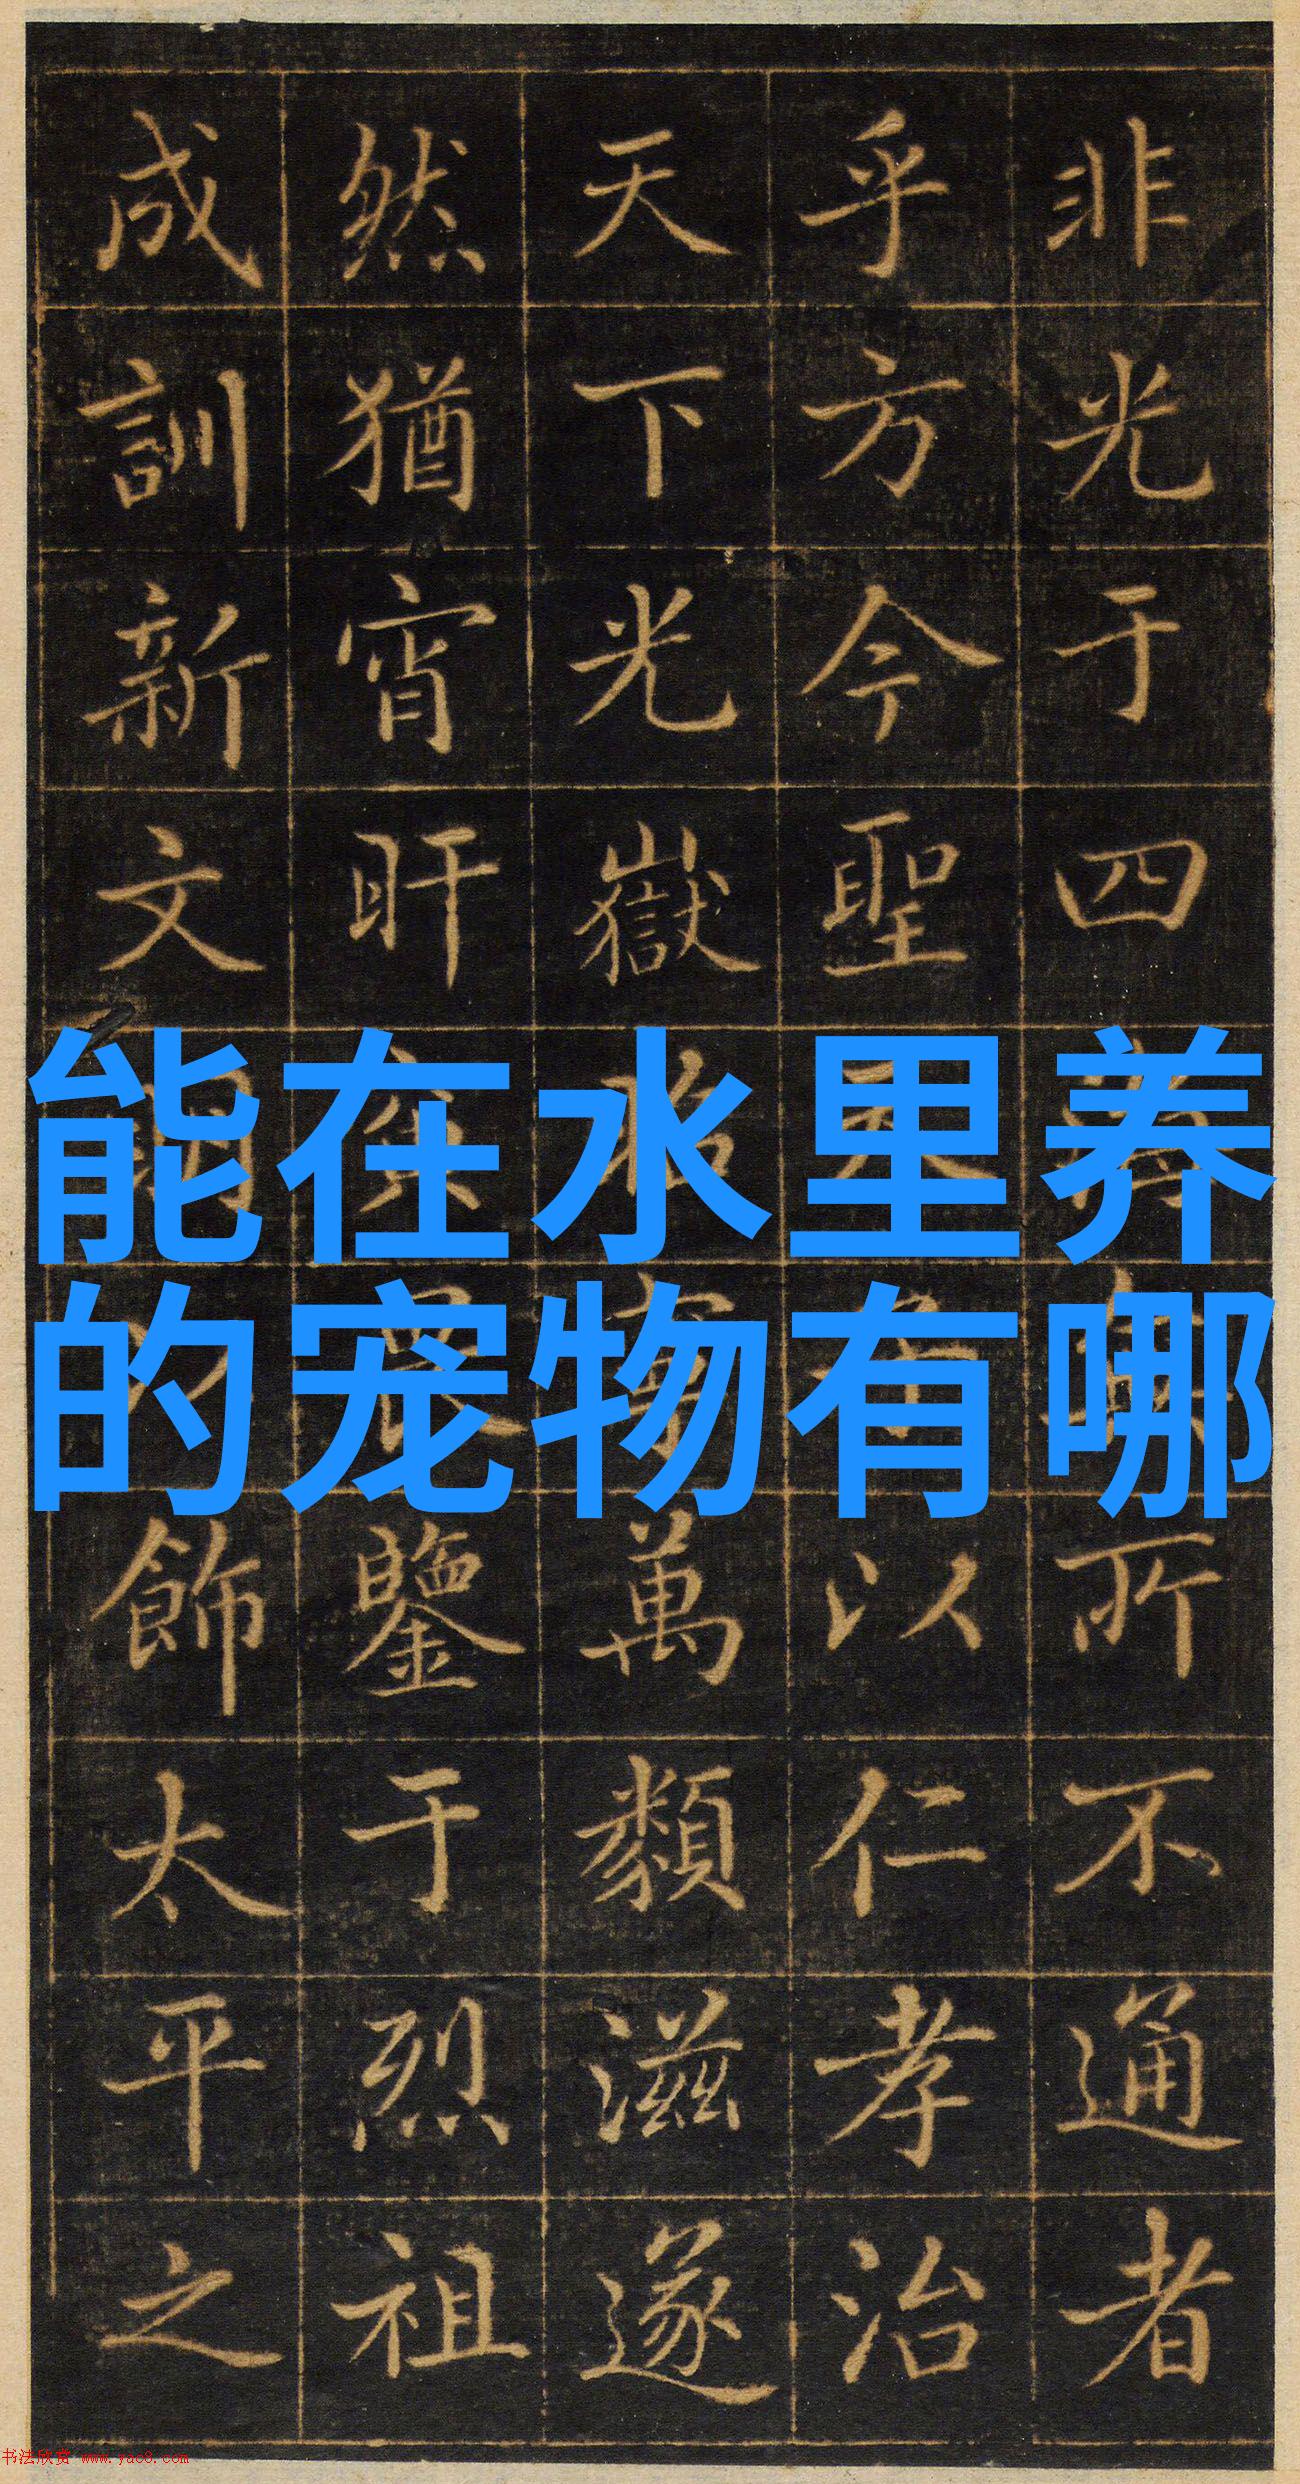 非光于四所不通者
乎方今聖以仁孝治
天下光嶽萬類滋遂
然猶宵旰鑒于烈祖
成訓新文飾太平之
能在水里养
的宠物有哪
书法欣赏 www.yac8.com